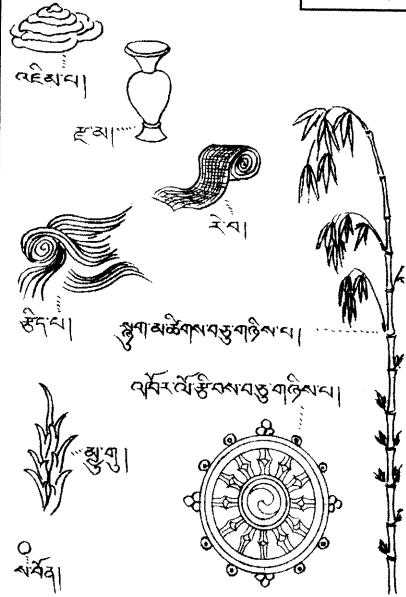 འཇིམ་པ།
རྫ་མ།
རེ་བེ།
རྩིད་པ།
སྨྱུག་མ་ཚིགས་བཅུ་གཉིས་པ།
འཁོར་ལོ་རྩིབས་བཅུ་གཉིས་པ།
མྱུ་གུ།
ས་བོན།